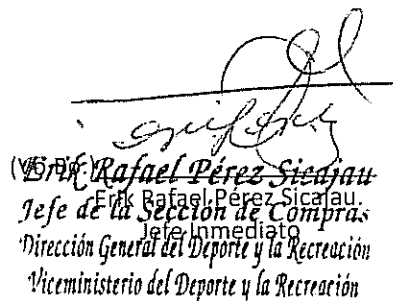 (Vo. Bo.)
Erik Rafael Pérez Sicajau
Erik Rafael Pérez Sicajau.
Jefe de la Sección de Compras
Jefe Inmediato
Dirección General del Deporte y la Recreación
Viceministerio del Deporte y la Recreación